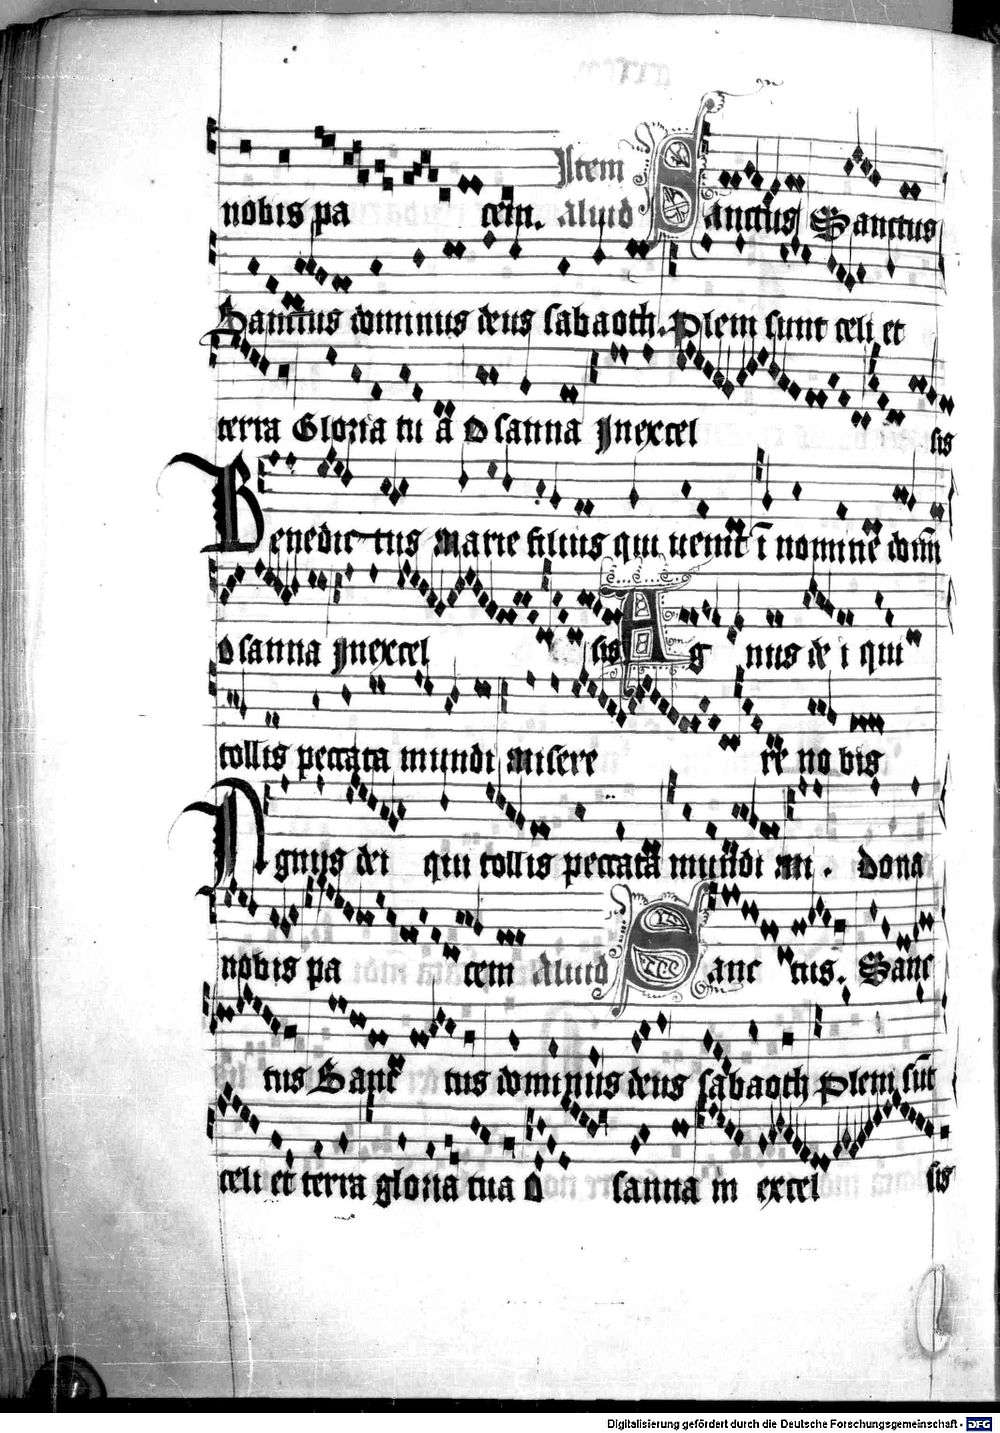 nobis pa cem. Item Aliud Sanctus Sanctus
Sanctus dominus deus sabaoth. Pleni sunt celi et
terra Gloria tu a O sanna Jn excel sis
Benedic tus Marie filius qui uenit ī nomine domī
O sanna Jn excel sis Ag nus de i qui
tollis peccata mundi Misere re no bis
Agnus dei qui tollis peccata mundi mi . dona
nobis pa cem Aliud Sanc tus. Sanc
tus Sanc tus dominus deus sabaoth Pleni sūt
celi et terra gloria tua O sanna in excel sis
Digitalisierung gefördert durch die Deutsche Forschungsgemeinschaft - DFG